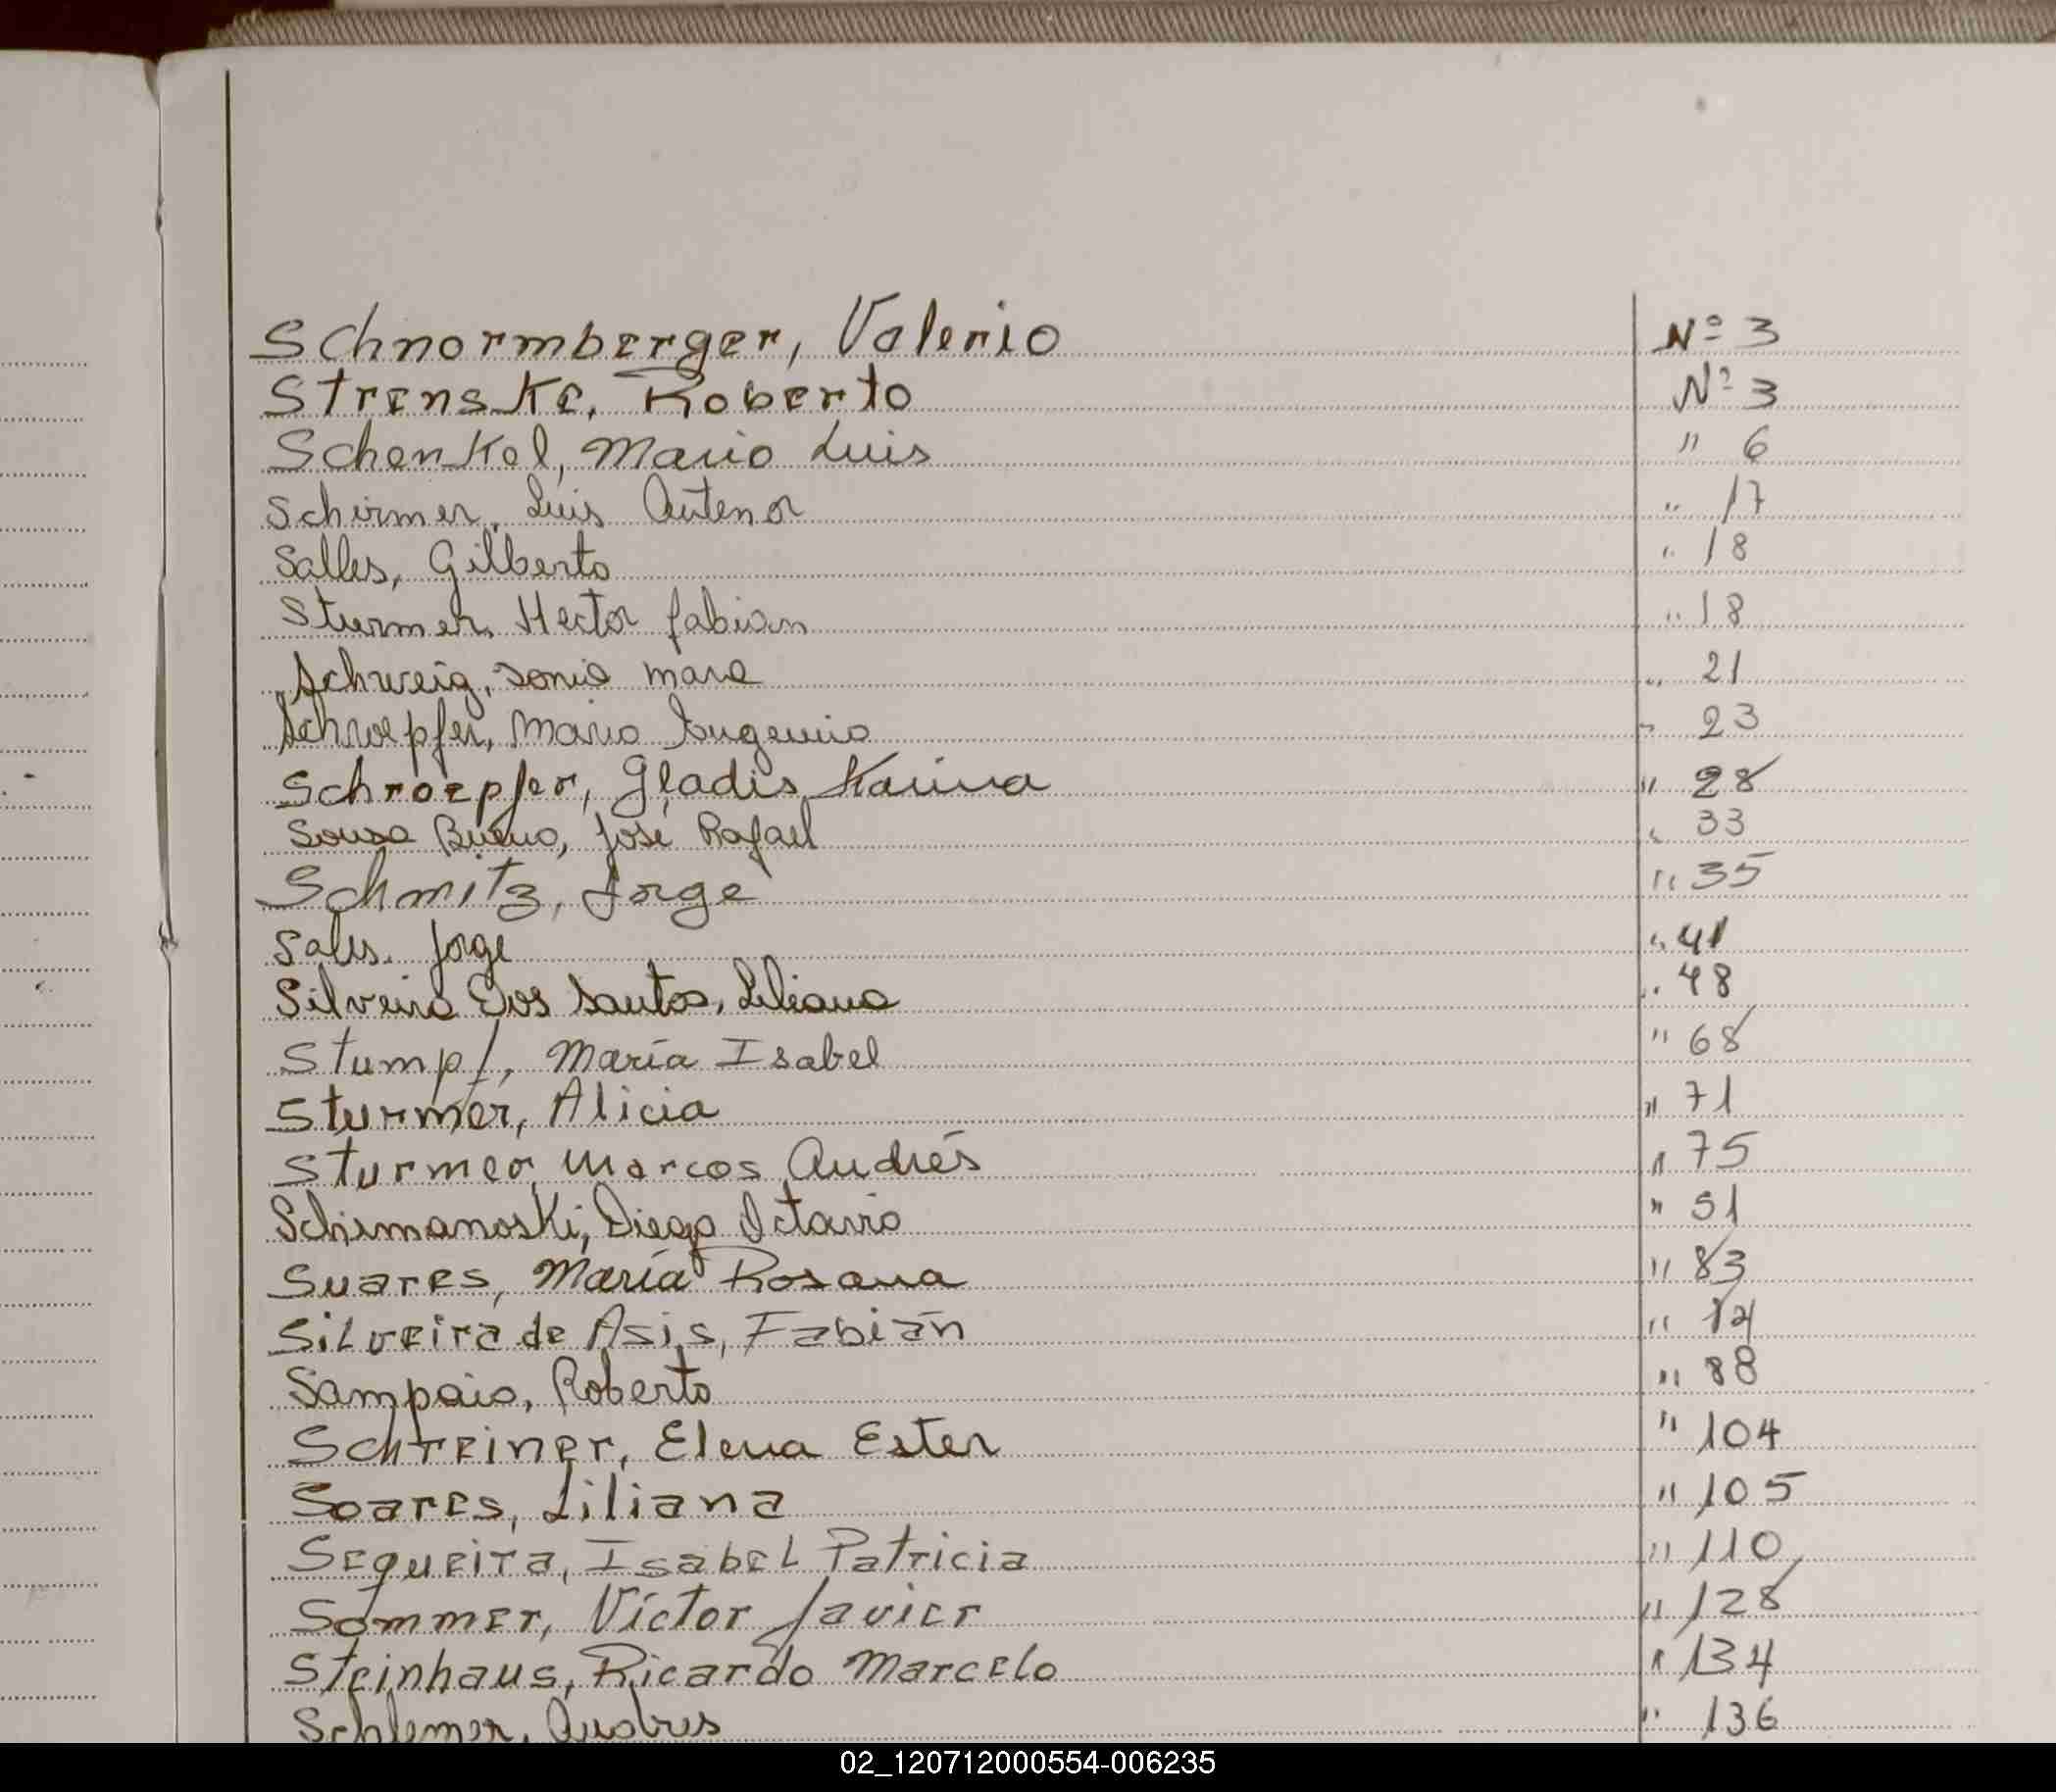 Schnormberger, Valerio Nº 3
Strenske, Roberto Nº 3
Schenkel, Mario Luis " 6
Schirmer, Luis Antenor " 17
Salles, Gilberto " 18
Sturmer, Hector fabian " 18
Schweig, Sonia mara " 21
Schroepfer, Mario Eugenio " 23
Schroepfer, Gladis Karina " 28
Sousa Bueno, José Rafael " 33
Schmitz, Jorge " 35
Sales, Jorge " 41
Silveira Dos Santos, Liliana " 48
Stumpf, María Isabel " 68
Sturmer, Alicia " 71
Sturmer, Marcos Andrés " 75
Schimanoski, Diego Octavio " 51
Suares, María Rosana " 83
Silveira de Asis, Fabián "
Sampaio, Roberto " 88
Schreiner, Elena Ester " 104
Soares, Liliana " 105
Sequeira, Isabel Patricia " 110
Sommer, Víctor Javier " 128
Steinhaus, Ricardo Marcelo " 134
Schlemer, Andres " 136
02_120712000554-006235